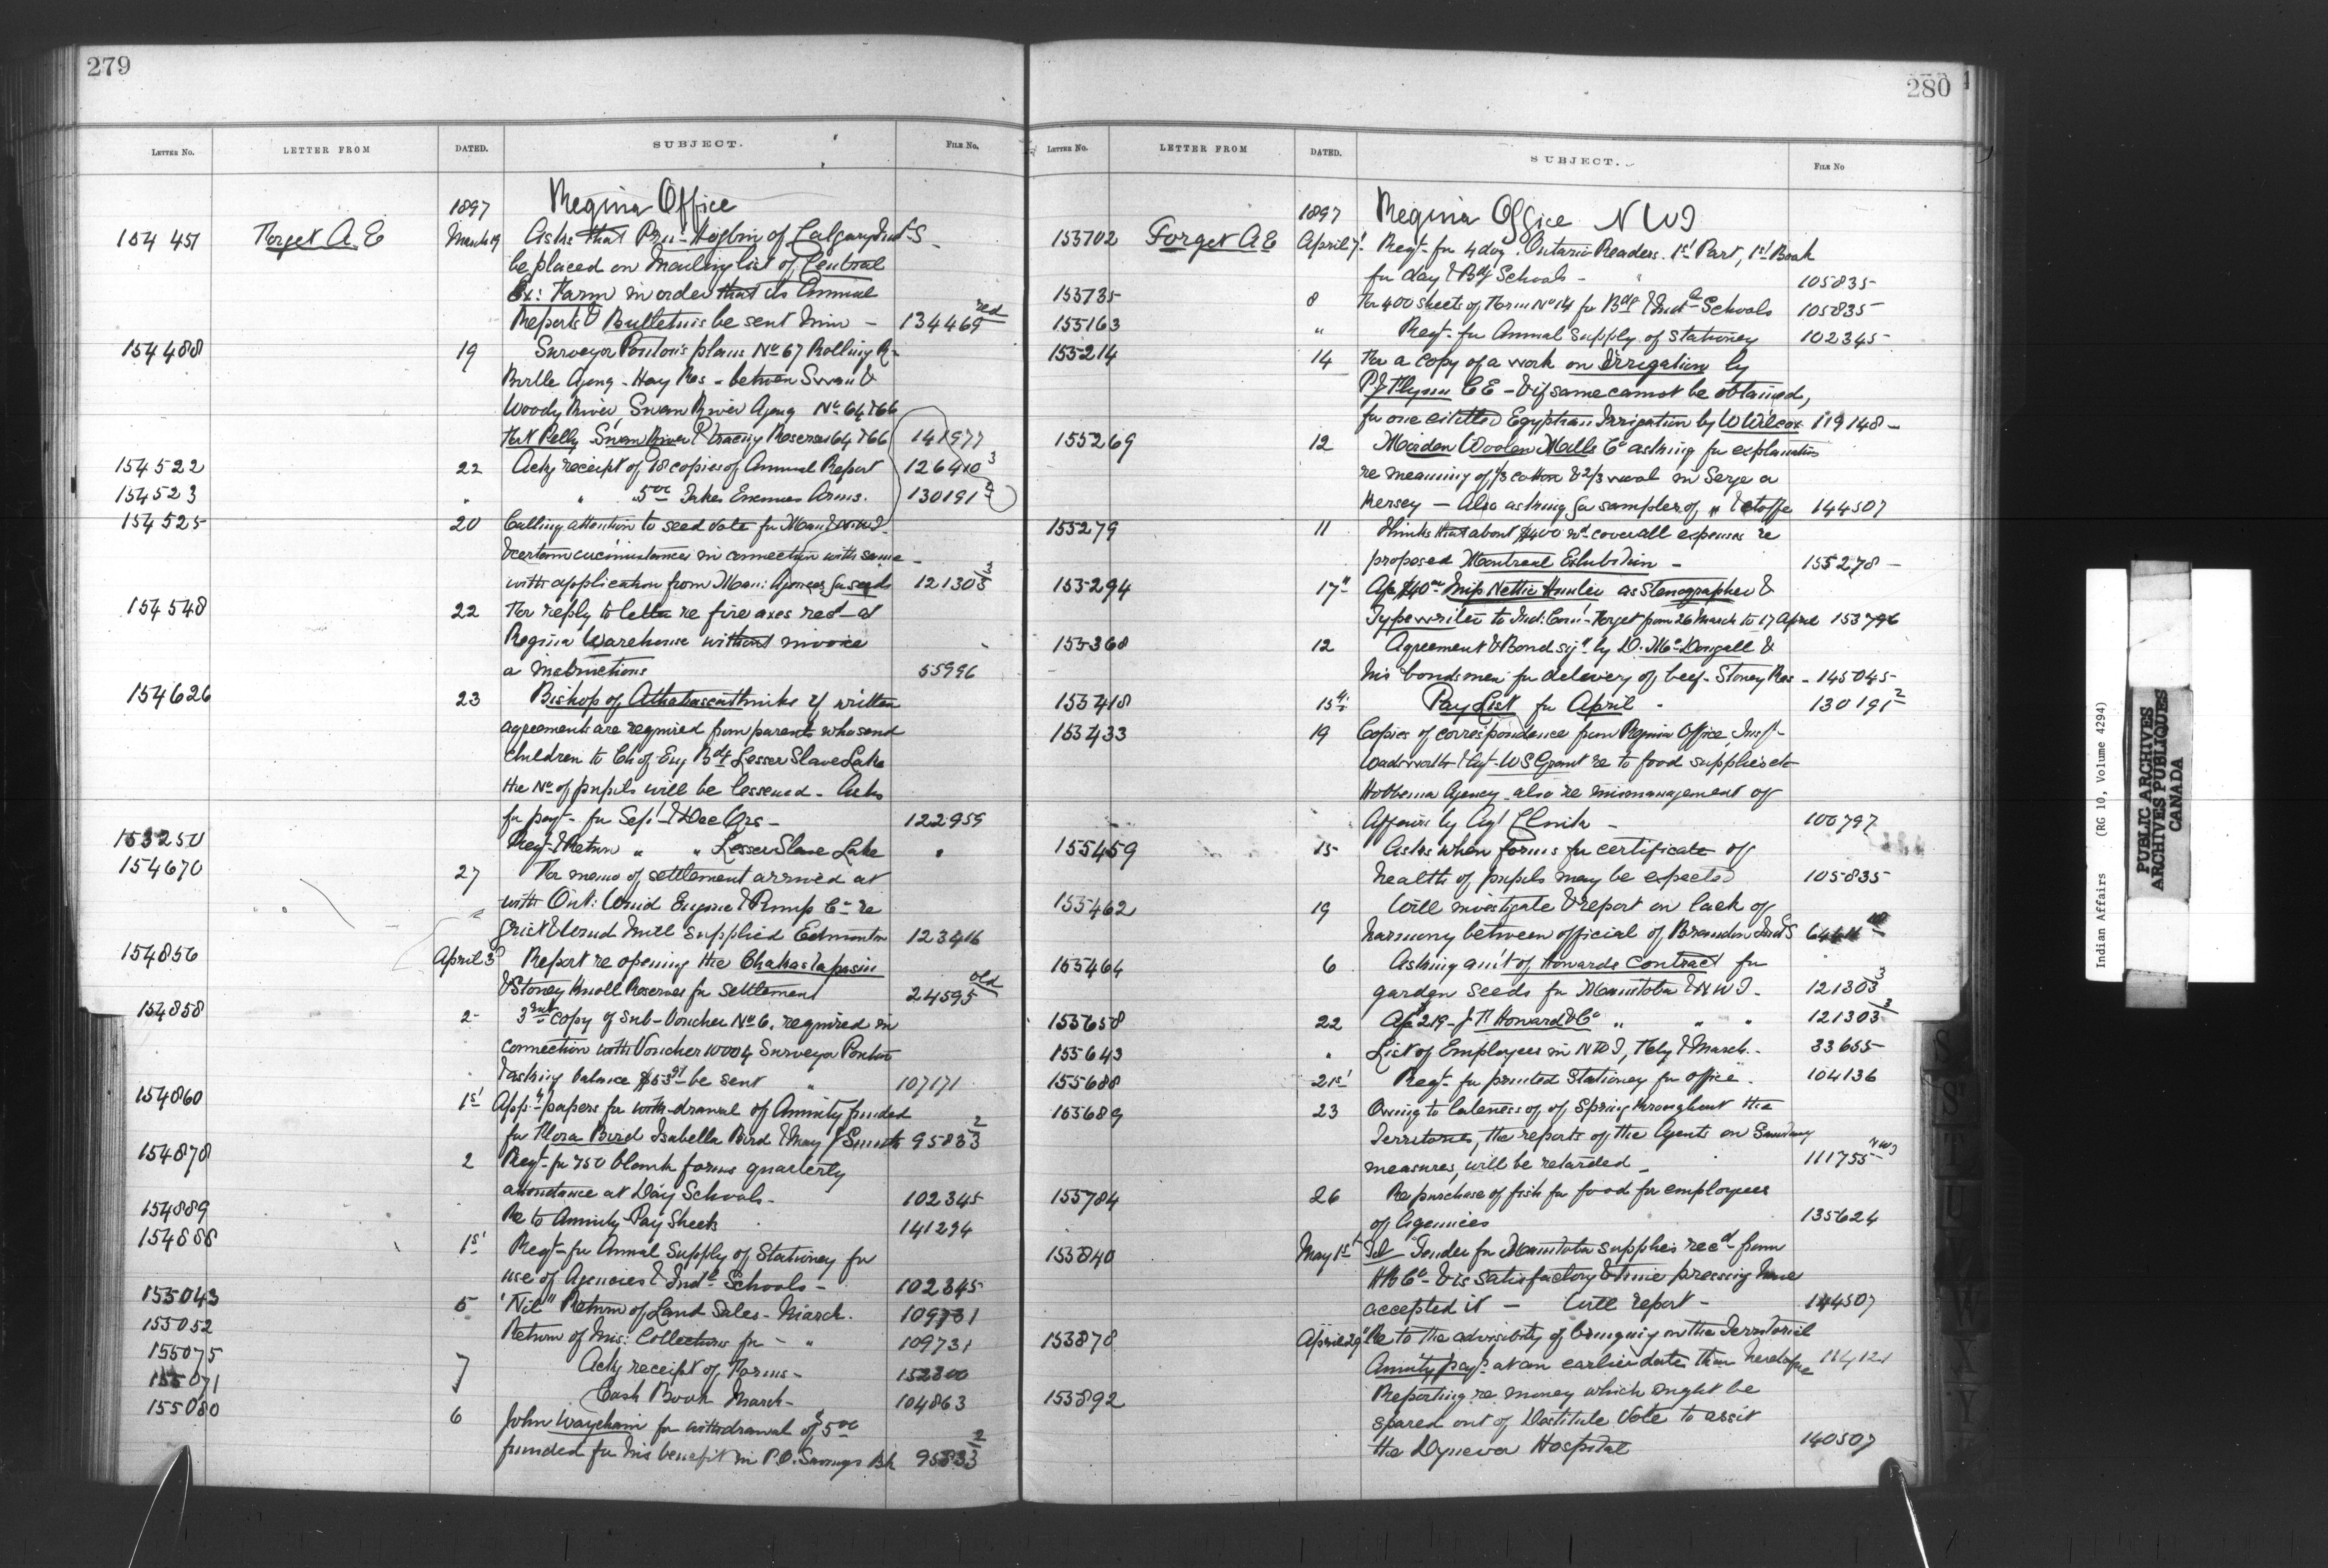 279
LETTER No. LETTER FROM DATED. SUBJECT. FILE No.
1897 Regina Office
154451 Forget A. E March 19 Asks that Prin: Hogbin of Calgary Ind S
be placed on Mailing list of Central
Ex: Farm in order that its Annual
Reports & Bulletins be sent him – 134469 red
154488 19 Surveyor Ponton's plans No 67 Rolling R–
Birtle Agency – Hay Res – between Swan &
Woody River, Swan River Agency No 64 & 66
Fort Pelly Swan River & tracing Reserves 64 & 66 141977
154522 22 Ackg receipt of 18 copies of Annual Report 126410 3
154523 " " " 5 00 Enemies Arms. 130191 2
154525 20 Calling attention to seed vote for Man & N.W.T.
& certain circumstances in connection with same –
with application from Man: Agencies for seeds 121303 3
154548 22 For reply to letter re fire axes recd at
Regina Warehouse without invoice
or instructions 55996
154626 23 Bishop of Athabasca thinks if written
agreements are required from parents who send
children to Ch of Eng Bdg Lesser Slave Lake
the No of pupils will be lessened – Asks
for payt – for Sept & Dec Qrs – 122959
153250 Reqt & Return " " Lesser Slave Lake "
154670 27 For memo of settlement arrived at
with Ont: Wind Engine & Pump Co re
Grist & Wind Mill supplied Edmonton 123416
154856 April 3 Report re opening the Chakastapasin
& Stoney Knoll Reserves for settlement 24595 old
154858 2 3rd copy of Sub-Voucher No 6. required in
connection with Voucher 1000 4 Surveyor Ponton
& asking balance $53 be sent " 107171
154860 1st Appn papers for with-drawal of Annuity funded
for Flora Bird Isabella Bird & May J Smith 95833 2
154878 2 Reqt – for 750 blank forms quarterly
attendance at Day Schools – 102345
154889 Re to Annuity Pay Sheets 141294
154888 1st Reqt – for Annual Supply of Stationery for
use of Agencies & Indl Schools – 102345
155043 5 "Nil" Return of Land Sales – March. 109731
155052 Return of Mis: Collections for – " 109731
155075 7 Ackg receipt of Forms – 152800
155071 Cash Book March – 104863
155080 6 John Waychan for withdrawal of $5 00
funded for his benefit in P.O. Savings Bk 95833 2
280
LETTER No. LETTER FROM DATED. SUBJECT. FILE No
1897 Regina Office N W T
153702 Forget A E April 7 Reqt – for 4 doz. Ontario Readers. 1st Part, 1st Book
for day & Bdg Schools – 105835
153735 8 For 400 sheets of Form No 14 for Bdg & Indl Schools 105835
155163 " Reqt – for Annual Supply of Stationery 102345
155214 14 For a copy of a work on Irrigation by
P J Flynn C E – & if same cannot be obtained,
for one entitled Egyptian Irrigation by W Wilcox 119148 –
155269 12 Woolen Mills Co asking for explanation
re meaning of 1/3 cotton & 2/3 wool in Serge or
Kersey – Also asking for samples of " & etoffe 144507
155279 11 Thinks that about $400 wd cover all expenses re
proposed Montreal Exhibition – 155278 –
155294 17" Afc $40 00 Miss Nettie as Stenographer &
Typewriter to Ind: Com: Forget from 26 March to 17 April 153796
155368 12 Agreement & Bond sigd by D. McDougall &
his bondsmen for delivery of beef – Stoney Res – 145045
155418 15th Pay List for April 130191 2
155433 19 Copies of correspondence from Regina Office, Inspt –
Wadsworth & Agt – W S Grant re to food supplies &c
Hobbema Agency – also re mismanagement of
Affairs by Agt Clink – 100797
155459 15 Asks when forms for certificate of
health of pupils may be expected 105835
155462 19 Will investigate & report on lack of
harmony between official of Brandon Indl S
155464 6 Asking amt of Howards contract for
garden seeds for Manitoba & N W T – 121303 3
155658 22 Afc 219 – J H Howard & Co " " " 121303 3
155643 " List of Employees in NWT, Feby & March – 33655
155688 21st Reqt – for printed Stationery for office – 104136
155689 23 Owing to lateness of of Spring throughout the
Territories, the reports of the Agents on Sanitary
measures, will be retarded – 111755 NWT
155784 26 Re purchase of fish for food for employees
of Agencies 135624
155840 May 1st Tel – Tender for Manitoba supplies recd from
HB Co – & is satisfactory & time pressing have
accepted it – Will report – 144507
155878 April 29" Re to the advisibity of bringing on the Territorial
Annuity payts at an earlier date than heretofore 114121
155892 Reporting re money which might be
spared out of Destitute Vote to assit
the Dynevor Hospital 140507
Indian Affairs (RG 10, Volume 4294)
PUBLIC ARCHIVES
ARCHIVES PUBLIQUES
CANADA